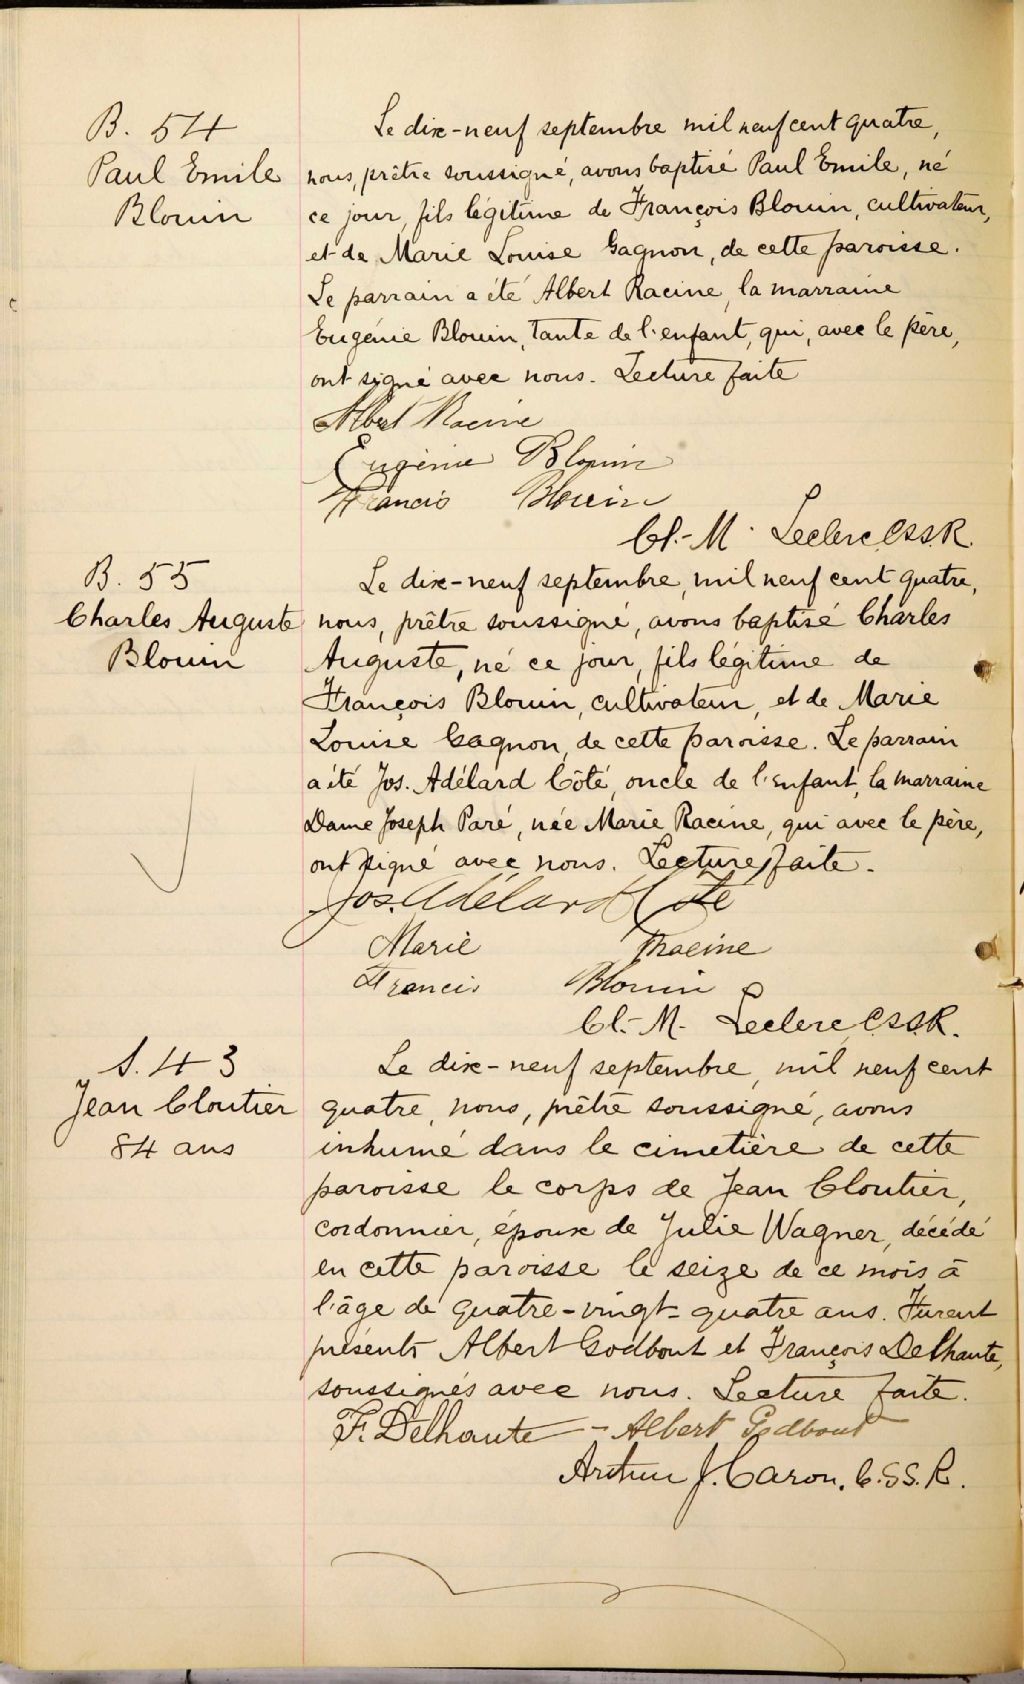 B. 54
Paul Emile
Blouin
Le dix-neuf septembre mil neuf cent quatre,
nous, prêtre soussigné, avons baptisé Paul Emile, né
ce jour, fils légitime de François Blouin, cultivateur,
et de Marie Louise Gagnon, de cette paroisse.
Le parrain a été Albert Racine, la marraine
Eugénie Blouin, tante de l'enfant, qui, avec le père,
ont signé avec nous. Lecture faite
Albert Racine
Eugénie Blouin
Francis Blouin
Cl.-M. Leclerc C.SS.R.
B. 55
Charles Auguste
Blouin
Le dix-neuf septembre, mil neuf cent quatre,
nous, prêtre soussigné, avons baptisé Charles
Auguste, né ce jour, fils légitime de
François Blouin, cultivateur, et de Marie
Louise Gagnon, de cette paroisse. Le parrain
a été Jos. Adélard Côté, oncle de l'enfant, la marraine
Dame Joseph Paré, née Marie Racine, qui avec le père,
ont signé avec nous. Lecture faite.
Jos. Adélard Côté
Marie Racine
Francis Blouin
Cl.-M. Leclerc C.SS.R.
S. 43
Jean Cloutier
84 ans
Le dix-neuf septembre, mil neuf cent
quatre, nous, prêtre soussigné, avons
inhumé dans le cimetière de cette
paroisse le corps de Jean Cloutier,
cordonnier, époux de Julie Wagner, décédé
en cette paroisse le seize de ce mois à
l'âge de quatre-vingt-quatre ans. Furent
présents Albert Godbout et François Delhaute,
soussignés avec nous. Lecture faite.
F. Delhaute - Albert Godbout
Arthur J. Caron. C.SS.R.